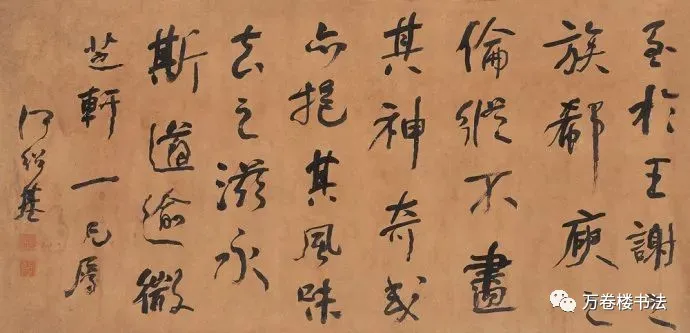 至於王謝之
族郗庾之
倫縱不盡
其神奇或
亦挹其風味
去之滋永
斯道逾微
芝軒一兄屬
何紹基
万卷楼书法